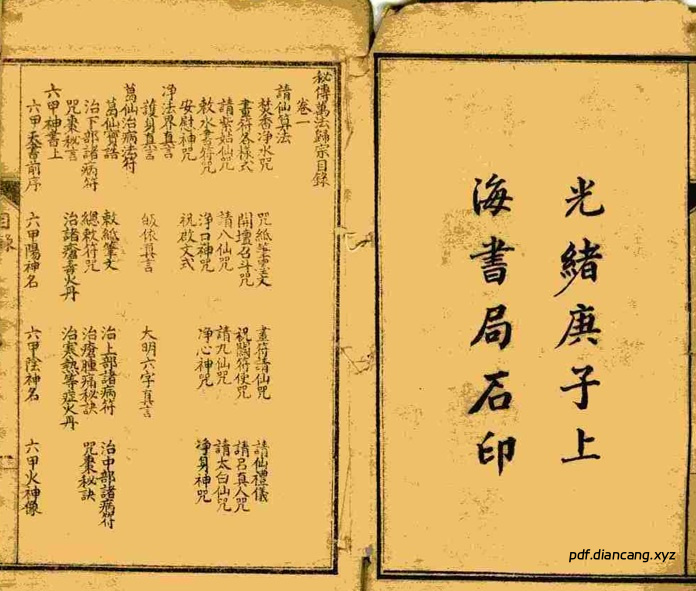 光緒庚子上
海書局石印
秘傳萬法歸宗目錄
卷一
請仙算法
焚香净水咒 咒紙筆墨文 畫符請仙咒 請仙禮儀
畫符各樣式 開壇召斗咒 祝闢符使咒 請呂真人咒
請紫姑仙咒 請八仙咒 請九仙咒 請太白仙咒
敕水書符咒 净口神咒 净心神咒 净身神咒
安慰神咒 祝啟文式
净法界真言
護身真言 皈依真言 大明六字真言
葛仙治病法符
葛仙實話 敕紙筆文 治上部諸病符 治中部諸病符
治下部諸病符 總敕符咒 治瘡腫痛秘訣 咒棗秘訣
咒棗秘言 治諸瘡毒火丹 治寒熱等症火丹
六甲神書上
六甲天書前序 六甲陽神名 六甲陰神名 六甲火神像
目錄
pdf.diancang.xyz